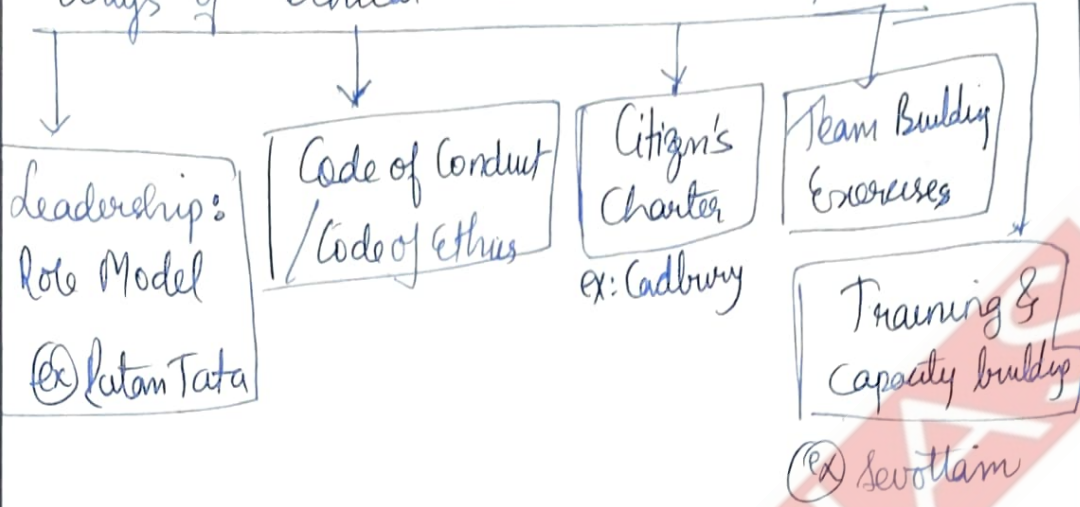 Ways of
Leadership:
Role Model
ex Ratan Tata
Code of Conduct
/Code of Ethics
Citizen's
Charter
ex: Cadbury
Team Building
Exercises
Training &
Capacity building
ex Sevottam